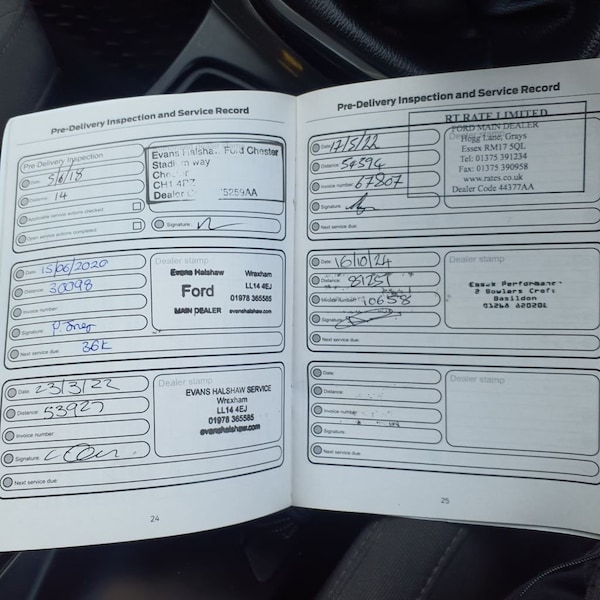 Pre-Delivery Inspection and Service Record
Pre Delivery Inspection
Date: 5/6/18
Distance: 14
Applicable service actions
Open service actions completed:
Signature:
Evans Halshaw Ford Chester
Stadium way
CH1 4
Dealer 5259AA
Date: 15/06/2020
Distance: 30098
Invoice number:
Signature:
Next service due: 36K
Dealer stamp
Evans Halshaw Wrexham
Ford LL14 4EJ
01978 365585
MAIN DEALER evanshalshaw.com
Date: 23/3/22
Distance: 53927
Invoice number:
Signature:
Next service due:
Dealer stamp
EVANS HALSHAW SERVICE
Wrexham
LL14 4EJ
01978 365585
evanshalshaw.com
24
Pre-Delivery Inspection and Service Record
Date: 17/5/22
Distance: 54394
Invoice number: 67807
Signature:
Next service due:
RT RATE LIMITED
FORD MAIN DEALER
Hogg Lane, Grays
Essex RM17 5QL
Tel: 01375 391234
Fax: 01375 390958
www.rates.co.uk
Dealer Code 44377AA
Date: 16/10/24
Distance: 81251
Invoice Number: 10658
Signature:
Next service due:
Dealer stamp
Essex Performance
2 Bowlers Croft
Basildon
01268 820206
Date:
Distance:
Invoice number
Signature:
Next service due:
Dealer stamp
25